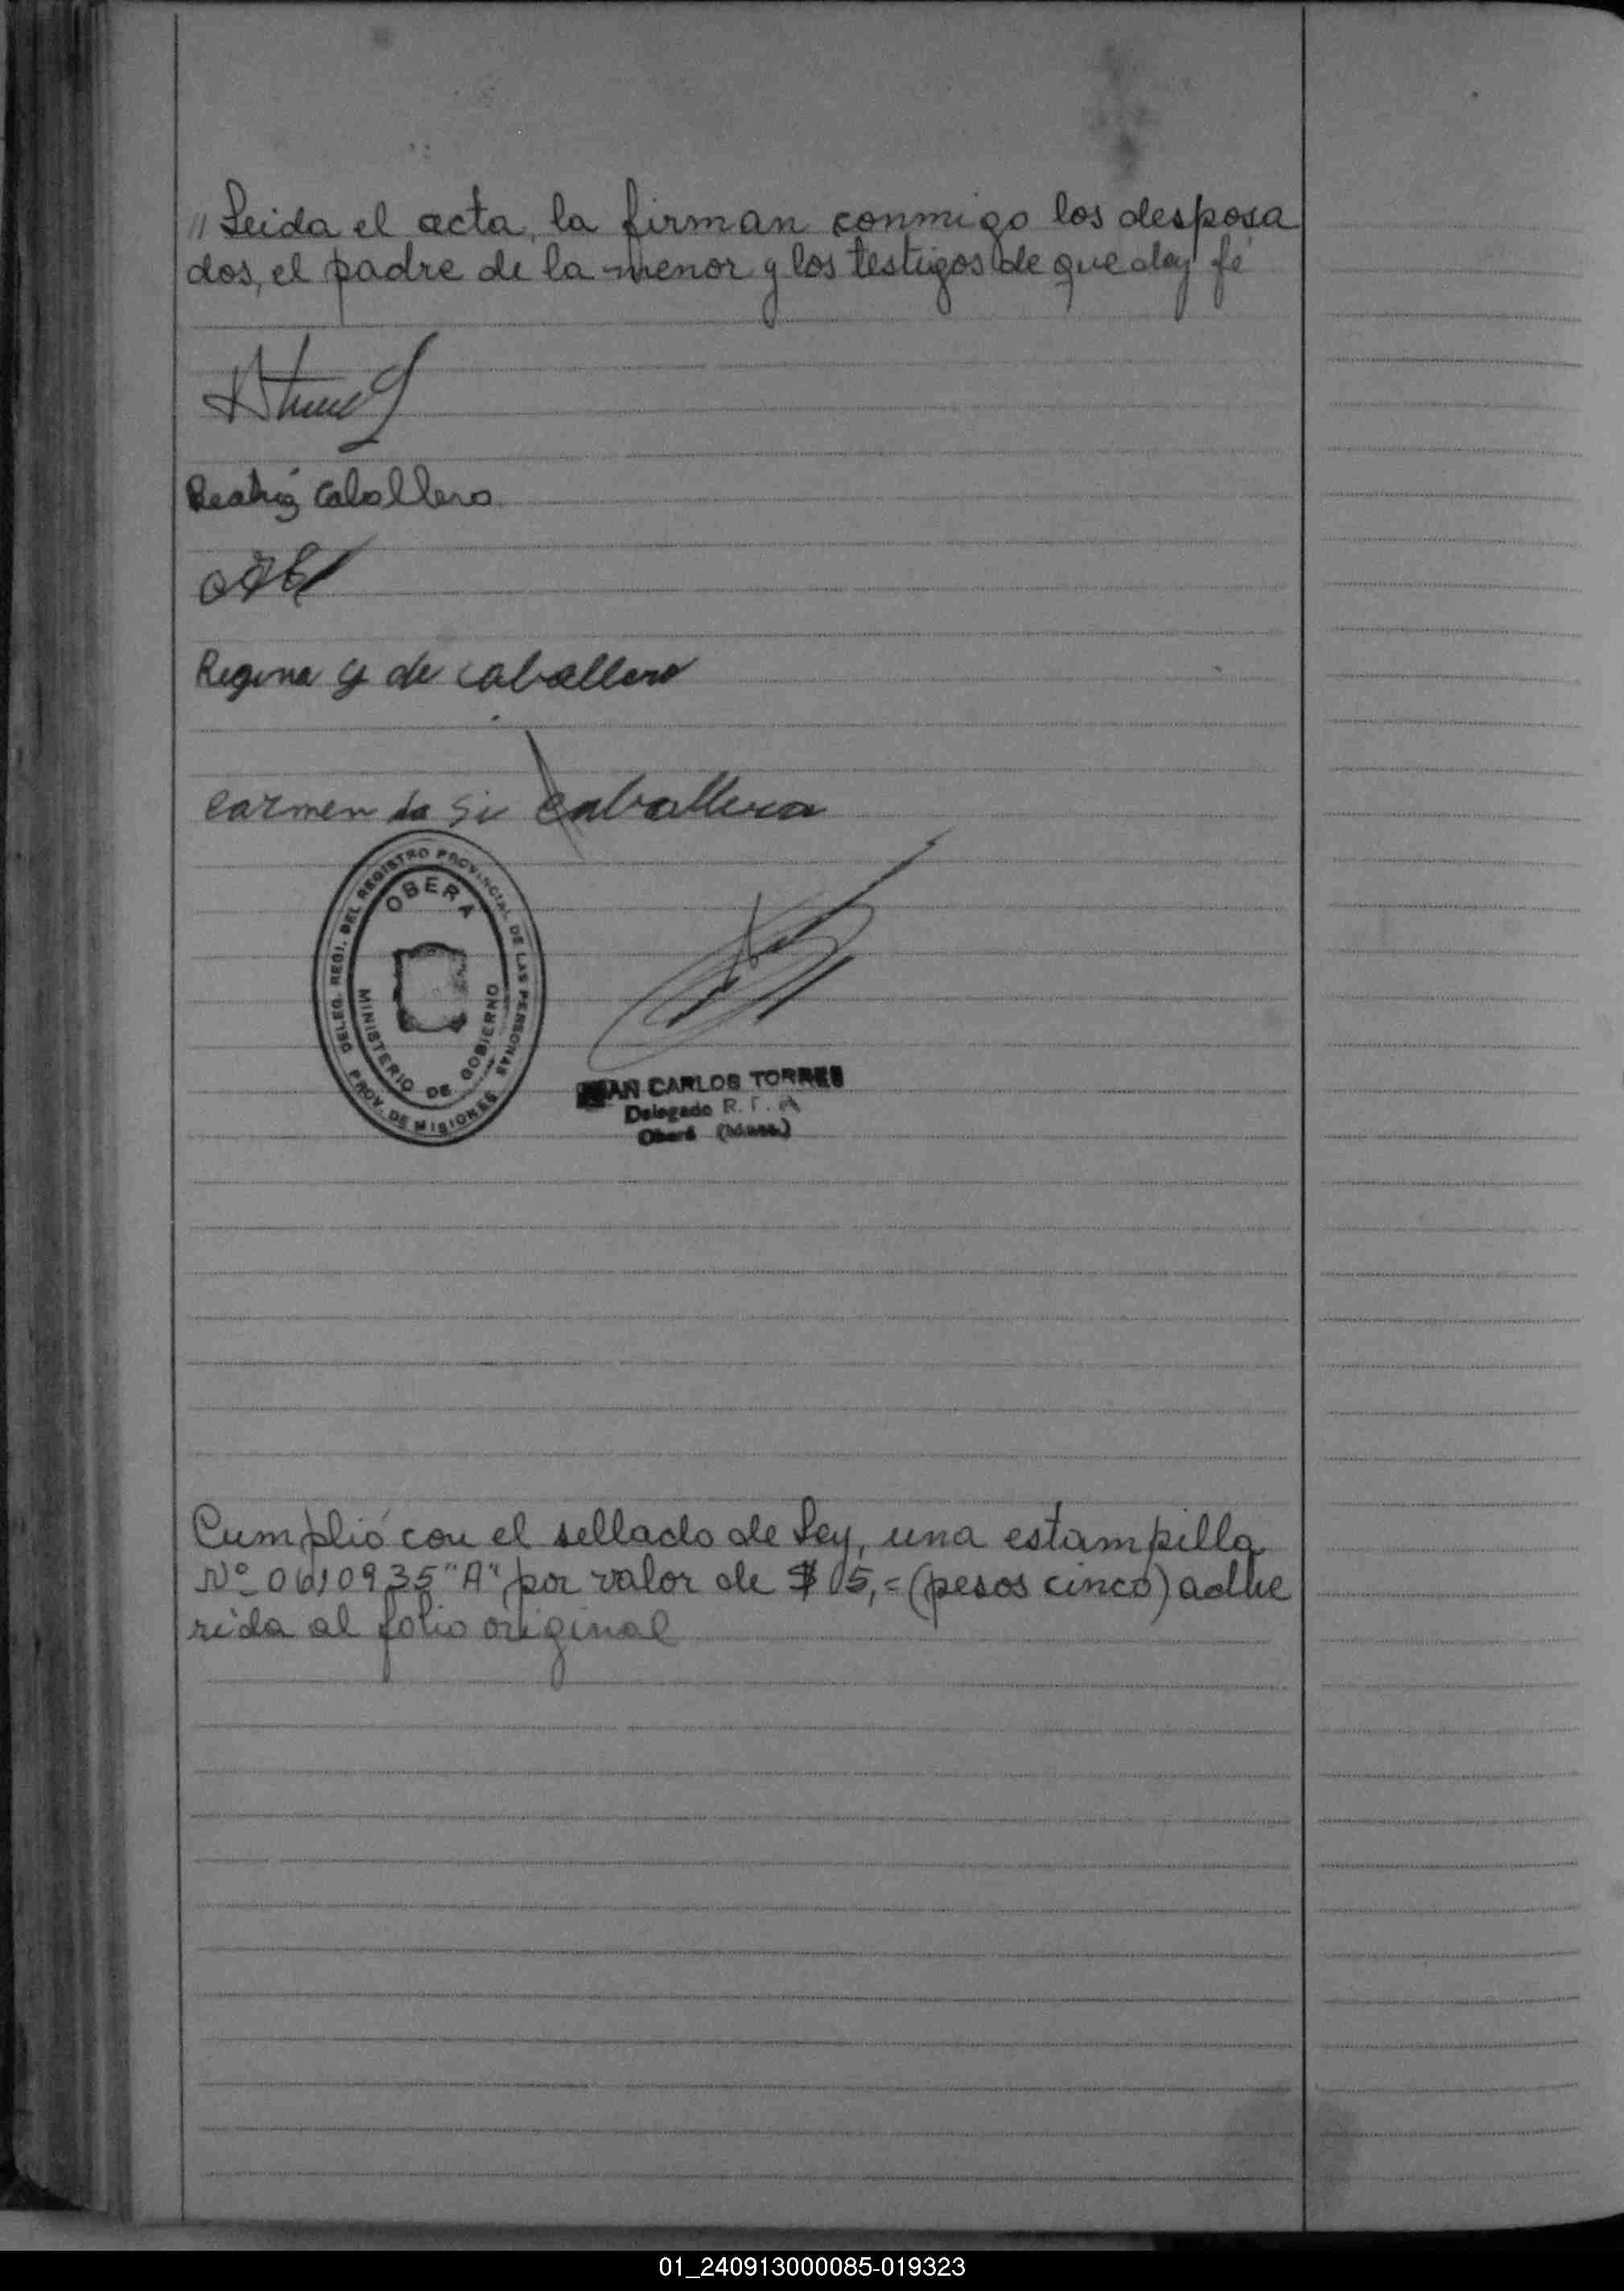 // Leida el acta, la firman conmigo los desposa
dos, el padre de la menor y los testigos de que doy fé
Beatriz Caballero
Regina G de caballero
Carmen da Si Caballera
DELEG. REGI. DEL REGISTRO PROVINCIAL DE LAS PERSONAS
OBERA
MINISTERIO DE GOBIERNO
PROV. DE MISIONES
JUAN CARLOS TORRES
Delegado R. P.
Oberá (Mnes.)
Cumplió con el sellado de Ley, una estampilla
Nº 0610935 "A" por valor de $ 05,= (pesos cinco) adhe
rida al folio original
01_240913000085-019323